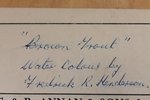 "Brown Trout"
Water Colour by
Fredrick R. Henderson.
J. & R. ANNAN & SONS